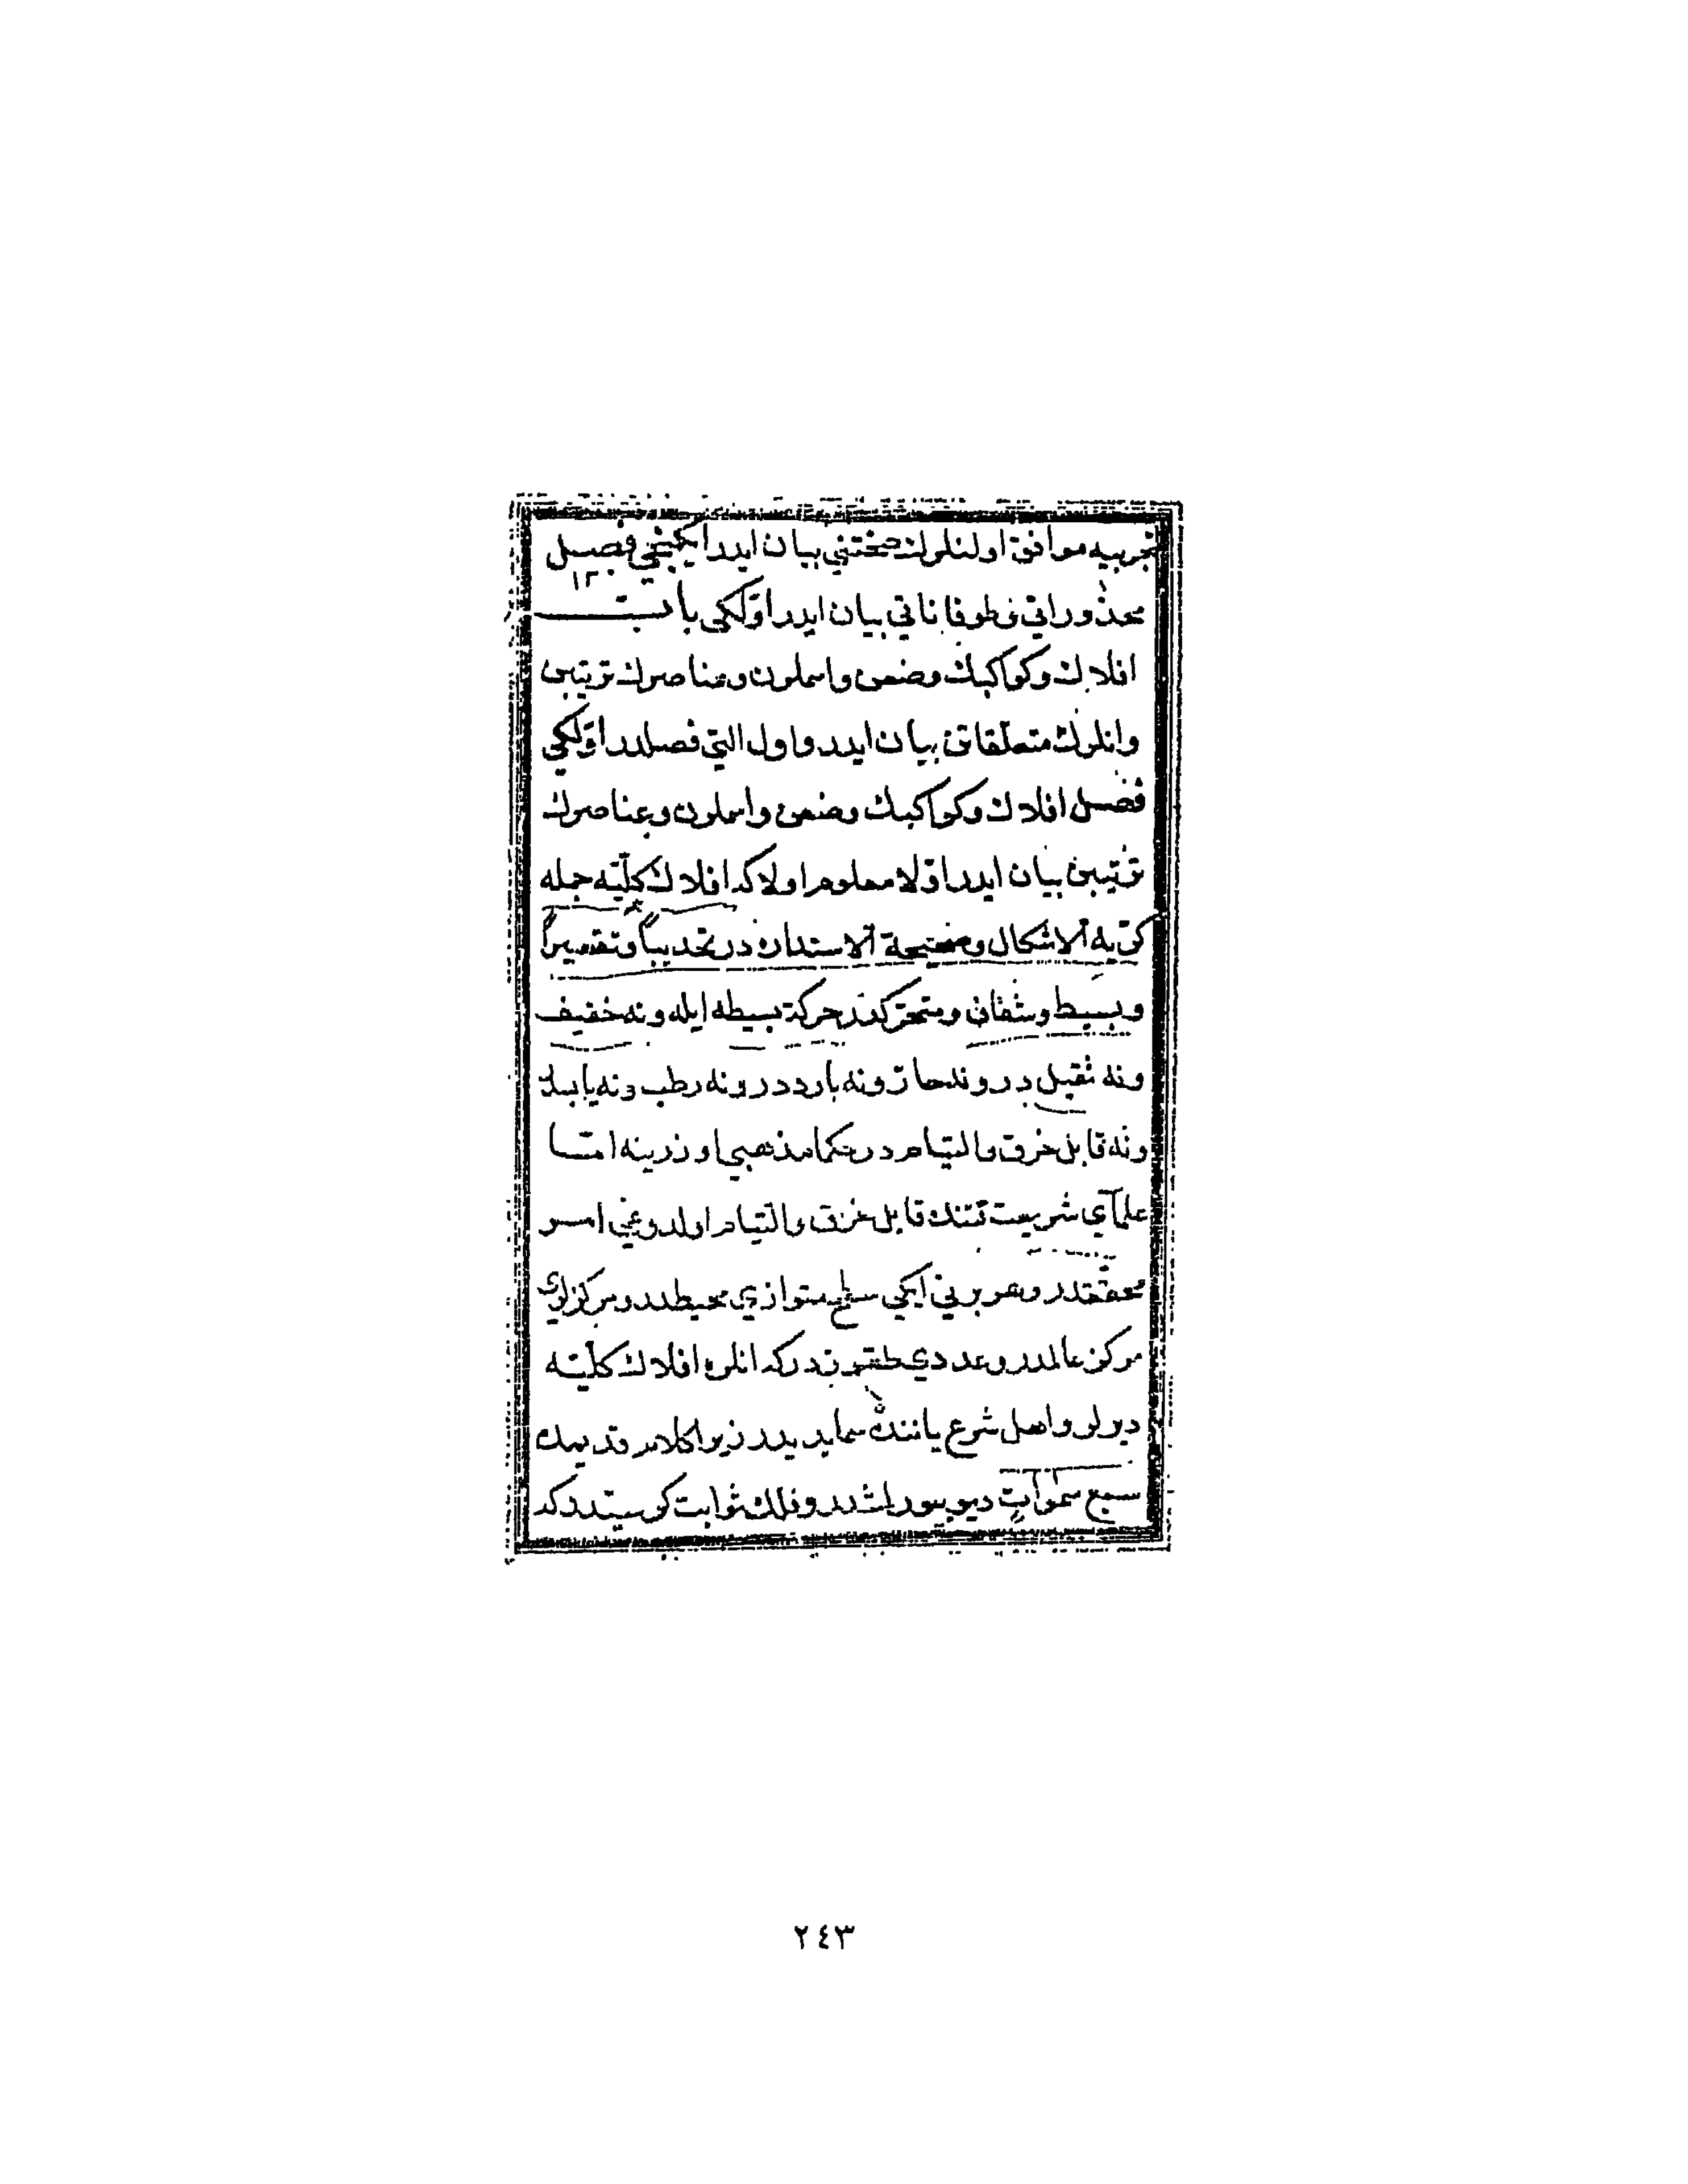 تجربيه موافق اولنلرك صحّتني بيان ايدر ايكينجي فصل
١٢
محذوراتي وطوفاناتي بيان ايدر اوّلكي باب
افلاك وكواكبك وضعن واسملرن وعناصرك ترتيبن
وانلرك متعلّقاتن بيان ايدر واول التي فصلدر اوّلكي
فصل افلاك وكواكبك وضعن واسملرن وعناصرك
ترتيبن بيان ايدر اوّلا معلوم اولا كه افلاك كلّيّه جمله
كرّيه الاشكال وصحيحة الاستداره در تحديباً وتقعيراً
وبسيط وشفّاف ومتحرّكدر حركت بسيطه ايله ونه خفيف
ونه ثقيل در ونه حارّ ونه بارددر ونه رطب ونه يابسدر
ونه قابل خرق والتيام در حكما مذهبي اوزرينه امّا
علماي شريعت قتنده قابل خرق والتيام اولدوغي امر
محقّقدر وهر بري ايكي سطح متوازي محيطدر ومركزلري
مركز عالمدر وعددي طقوزدر كه انلره افلاك كلّيّه
ديرلر واهل شرع ياننده سما يديدر زيرا كلام قديمده
سبع سموات ديو بيورلمشدر وفلك ثوابت كرسيدر كه
٢٤٣